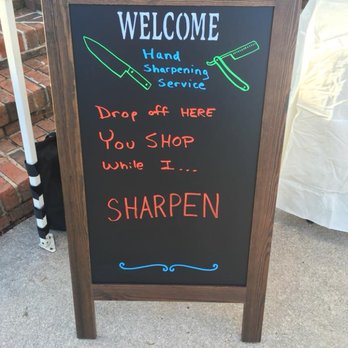 WELCOME
Hand
Sharpening
Service
Drop off HERE
You SHOP
While I...
SHARPEN